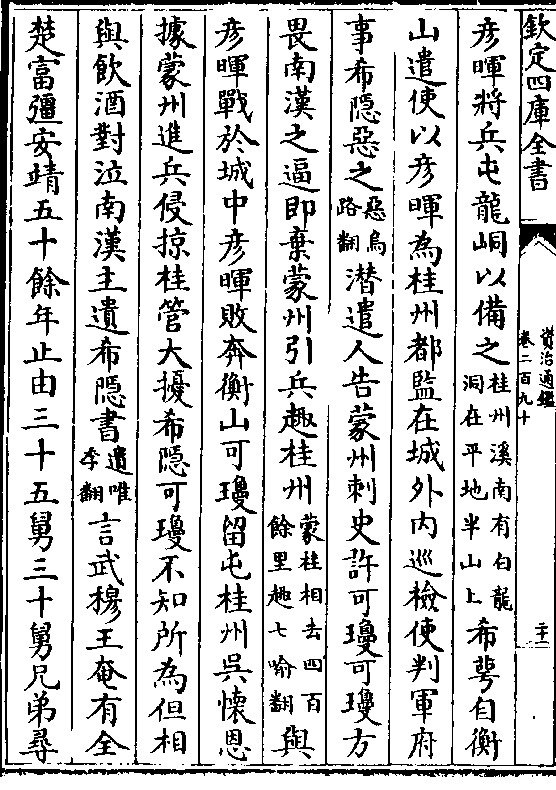 欽定四庫全書
資治通鑑
卷二百九十
二十一
彦暉將兵屯龍峒以備之桂州溪南有白龍洞在平地半山上希萼自衡
山遣使以彦暉為桂州都監在城外内巡檢使判軍府
事希隱惡之惡烏路翻潜遣人告蒙州刺史許可瓊可瓊方
畏南漢之逼即棄蒙州引兵趣桂州蒙桂相去四百餘里趣七喻翻與
彦暉戰於城中彦暉敗奔衡山可瓊留屯桂州吳懷恩
據蒙州進兵侵掠桂管大擾希隱可瓊不知所為但相
與飲酒對泣南漢主遺希隱書遺唯季翻言武穆王奄有全
楚富彊安靖五十餘年止由三十五舅三十舅兄弟尋